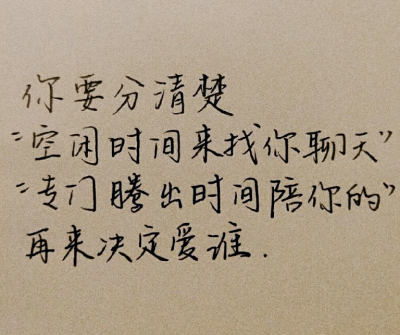 你要分清楚
“空闲时间来找你聊天”
“专门腾出时间陪你的”
再来决定爱谁.